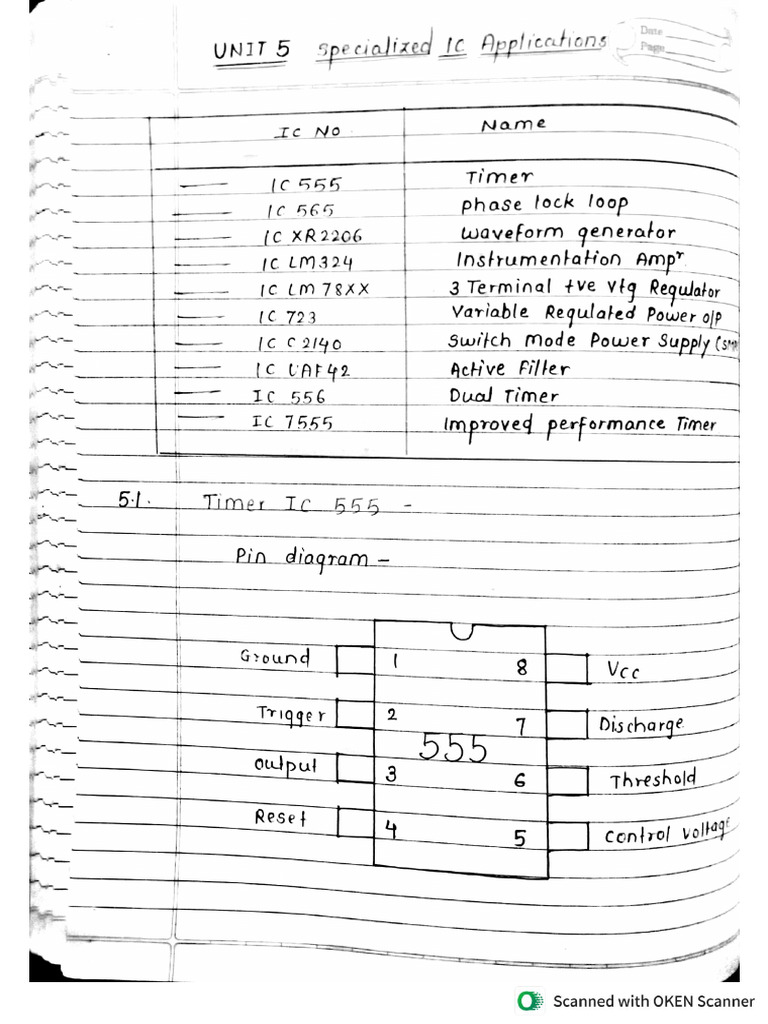 Date
Page
UNIT 5 Specialized IC Applications
IC No Name
IC 555 Timer
IC 565 phase lock loop
IC XR2206 waveform generator
IC LM324 Instrumentation Ampr
IC LM 78XX 3 Terminal +ve Vtg Regulator
IC 723 Variable Regulated Power o/p
IC C2140 Switch mode Power Supply (SMP
IC UAF42 Active Filter
IC 556 Dual Timer
IC 7555 Improved performance Timer
5.1. Timer IC 555 -
Pin diagram -
Ground 1 8 Vcc
Trigger 2 7 Discharge
555
Output 3 6 Threshold
Reset 4 5 Control voltage
Scanned with OKEN Scanner